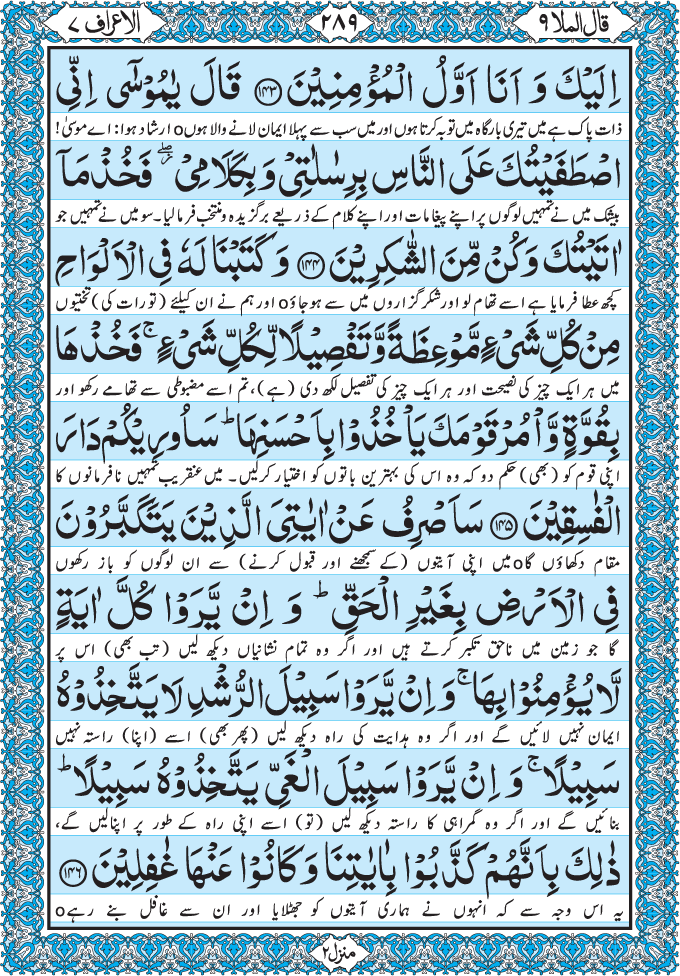 قال الملا ۹
۲۸۹
الاعراف ۷
اِلَيْكَ وَ اَنَا اَوَّلُ الْمُؤْمِنِيْنَ ﴿۱۴۳﴾ قَالَ يٰمُوْسٰٓى اِنِّي
ذات پاک ہے میں تیری بارگاہ میں توبہ کرتا ہوں اور میں سب سے پہلا ایمان لانے والا ہوںo ارشاد ہوا: اے موسیٰ!
اصْطَفَيْتُكَ عَلَى النَّاسِ بِرِسٰلٰتِيْ وَ بِكَلَامِيْ ۖ فَخُذْ مَاۤ
بیشک میں نے تمہیں لوگوں پر اپنے پیغامات اور اپنے کلام کے ذریعے برگزیدہ و منتخب فرما لیا۔ سو میں نے تمہیں جو
اٰتَيْتُكَ وَ كُنْ مِّنَ الشّٰكِرِيْنَ ﴿۱۴۴﴾ وَ كَتَبْنَا لَهٗ فِي الْاَلْوَاحِ
کچھ عطا فرمایا ہے اسے تھام لو اور شکر گزاروں میں سے ہو جاؤo اور ہم نے ان کیلئے (تورات کی) تختیوں
مِنْ كُلِّ شَيْءٍ مَّوْعِظَةً وَّ تَفْصِيْلًا لِّكُلِّ شَيْءٍ ۚ فَخُذْهَا
میں ہر ایک چیز کی نصیحت اور ہر ایک چیز کی تفصیل لکھ دی (ہے)، تم اسے مضبوطی سے تھامے رکھو اور
بِقُوَّةٍ وَّ اْمُرْ قَوْمَكَ يَاْخُذُوْا بِاَحْسَنِهَا ؕ سَاُورِيْكُمْ دَارَ
اپنی قوم کو (بھی) حکم دو کہ وہ اس کی بہترین باتوں کو اختیار کرلیں۔ میں عنقریب تمہیں نافرمانوں کا
الْفٰسِقِيْنَ ﴿۱۴۵﴾ سَاَصْرِفُ عَنْ اٰيٰتِيَ الَّذِيْنَ يَتَكَبَّرُوْنَ
مقام دکھاؤں گاo میں اپنی آیتوں (کے سمجھنے اور قبول کرنے) سے ان لوگوں کو باز رکھوں
فِي الْاَرْضِ بِغَيْرِ الْحَقِّ ؕ وَ اِنْ يَّرَوْا كُلَّ اٰيَةٍ
گا جو زمین میں ناحق تکبر کرتے ہیں اور اگر وہ تمام نشانیاں دیکھ لیں (تب بھی) اس پر
لَّا يُؤْمِنُوْا بِهَا ۚ وَ اِنْ يَّرَوْا سَبِيْلَ الرُّشْدِ لَا يَتَّخِذُوْهُ
ایمان نہیں لائیں گے اور اگر وہ ہدایت کی راہ دیکھ لیں (پھر بھی) اسے (اپنا) راستہ نہیں
سَبِيْلًا ۚ وَ اِنْ يَّرَوْا سَبِيْلَ الْغَيِّ يَتَّخِذُوْهُ سَبِيْلًا ؕ
بنائیں گے اور اگر وہ گمراہی کا راستہ دیکھ لیں (تو) اسے اپنی راہ کے طور پر اپنالیں گے،
ذٰلِكَ بِاَنَّهُمْ كَذَّبُوْا بِاٰيٰتِنَا وَ كَانُوْا عَنْهَا غٰفِلِيْنَ ﴿۱۴۶﴾
یہ اس وجہ سے کہ انہوں نے ہماری آیتوں کو جھٹلایا اور ان سے غافل بنے رہےo
منزل ۲